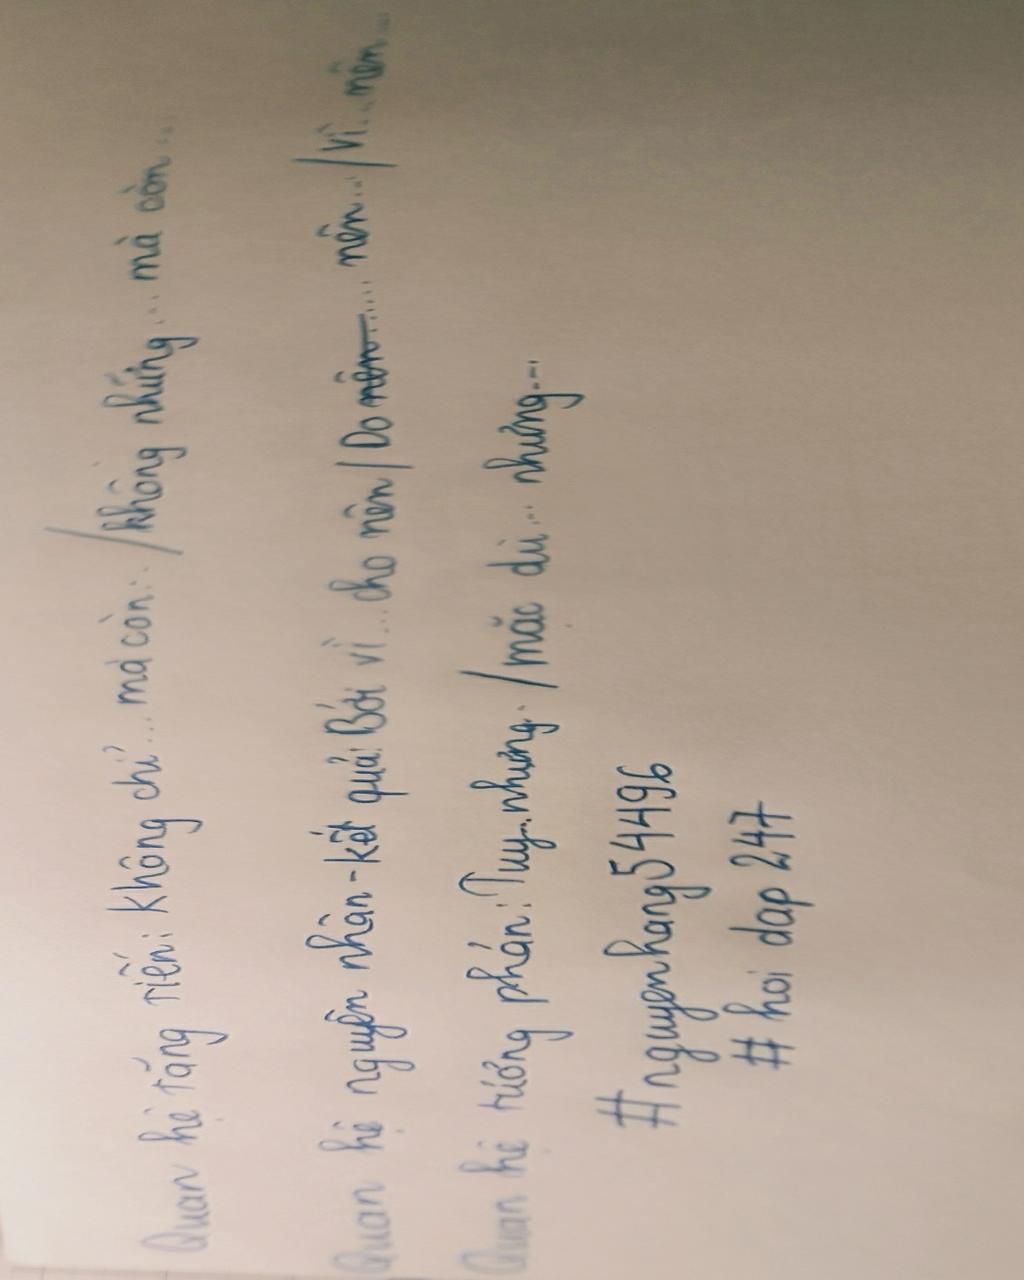 Quan hệ tăng tiến: Không chỉ... mà còn... / không những... mà còn...
Quan hệ nguyên nhân - kết quả: Bởi vì... cho nên / Do nên..... nên... / Vì... nên...
Quan hệ tương phản: Tuy...nhưng. / mặc dù... nhưng...
#nguyenhang54496
#hoi dap 247